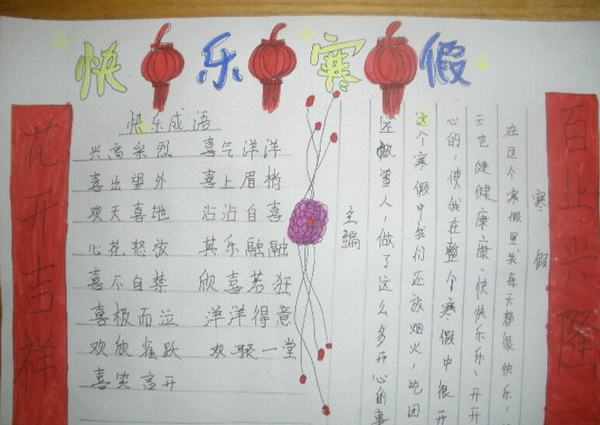 快乐寒假
花开吉祥
快乐成语
兴高采烈 喜气洋洋
喜出望外 喜上眉梢
欢天喜地 沾沾自喜
心花怒放 其乐融融
喜不自禁 欣喜若狂
喜极而泣 洋洋得意
欢欣雀跃 欢聚一堂
喜笑开
主编
百业兴隆
寒假
在这个寒假里,我每天都很快乐,
天也健健康康、快快乐乐、开开
心的,使我在整个寒假中很开
这个寒假中我们还放烟火,吃团
还人,做了这么多开心的事